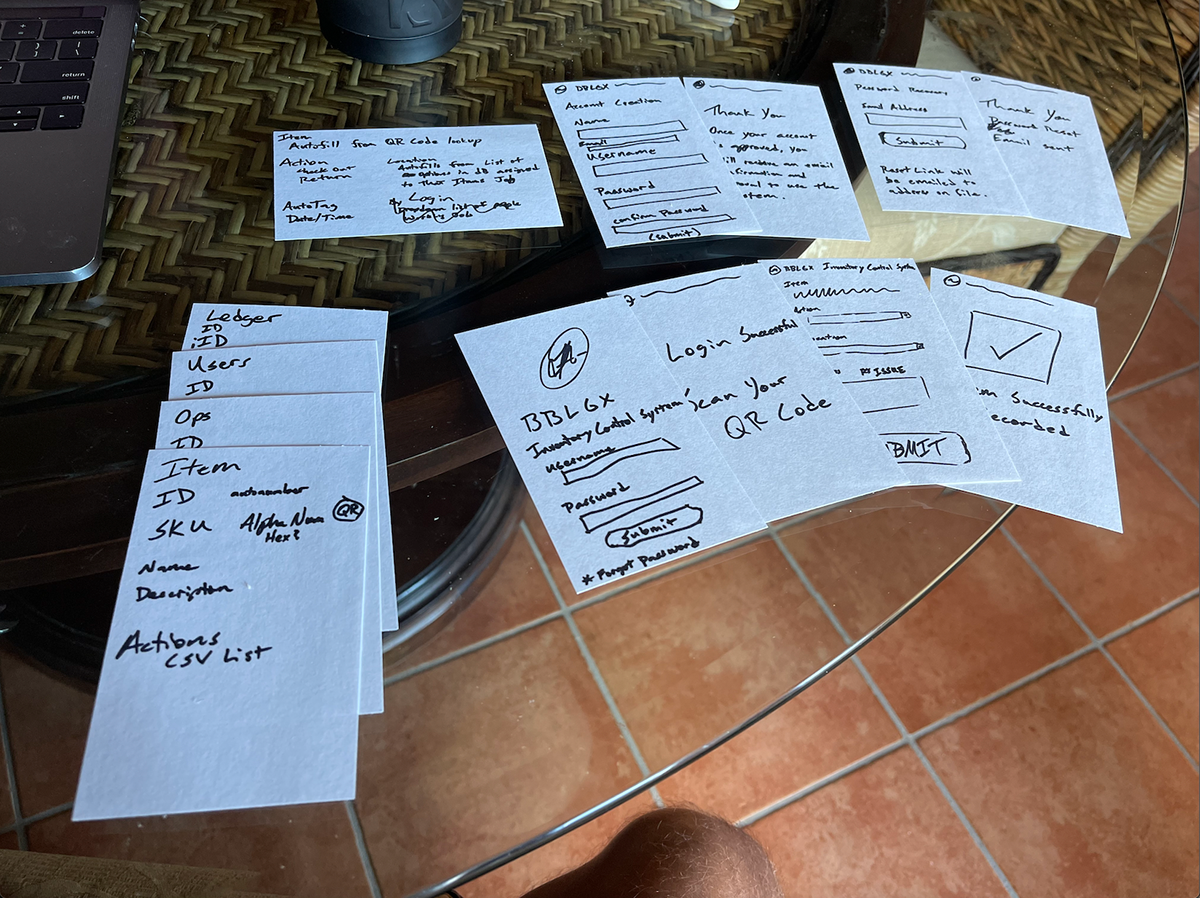 delete
return
shift
Item
Autofill from QR Code lookup
Action
Check Out
Return
Location
Autofills from List of
options in dB assigned
to This Items Job
AutoTag
Date/Time
By Login
DBLGX
Account Creation
Name
Email
Username
Password
Confirm Password
(submit)
Thank You
Once your account
is approved, you
will receive an email
to use the
BBLGX
Password Recovery
Email Address
Submit
Reset Link will
be emailed to
address on file.
Thank You
Password Reset
Email sent
Ledger
ID
iID
Users
ID
Ops
ID
Item
ID autonumber
SKU Alpha Num QR
Hex?
Name
Description
Actions
CSV List
BBLGX
Inventory Control System
Username
Password
Submit
* Forgot Password
Login Successful
Scan Your
QR Code
BBLGX Inventory Control System
Item
ISSUE
BMIT
Successfully
ecorded